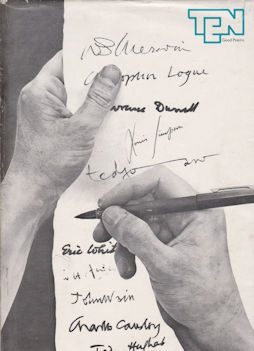 TEN
Good Poems
WS Merwin
Christopher Logue
Lawrence Durrell
Louis Simpson
Eric White
John Wain
Charles Causley
Ted Hughes